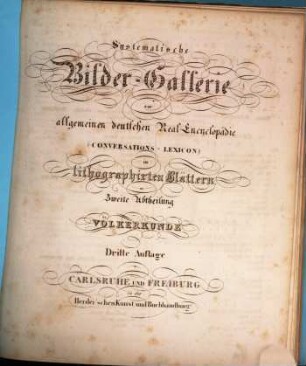 Systematische
Bilder-Gallerie
zur
allgemeinen deutschen Real-Encyclopädie
(CONVERSATIONS-LEXICON)
in
lithographirten Blättern
Zweite Abtheilung
VÖLKERKUNDE
Dritte Auflage
CARLSRUHE UND FREIBURG
in der
Herder'schen Kunst und Buchhandlung